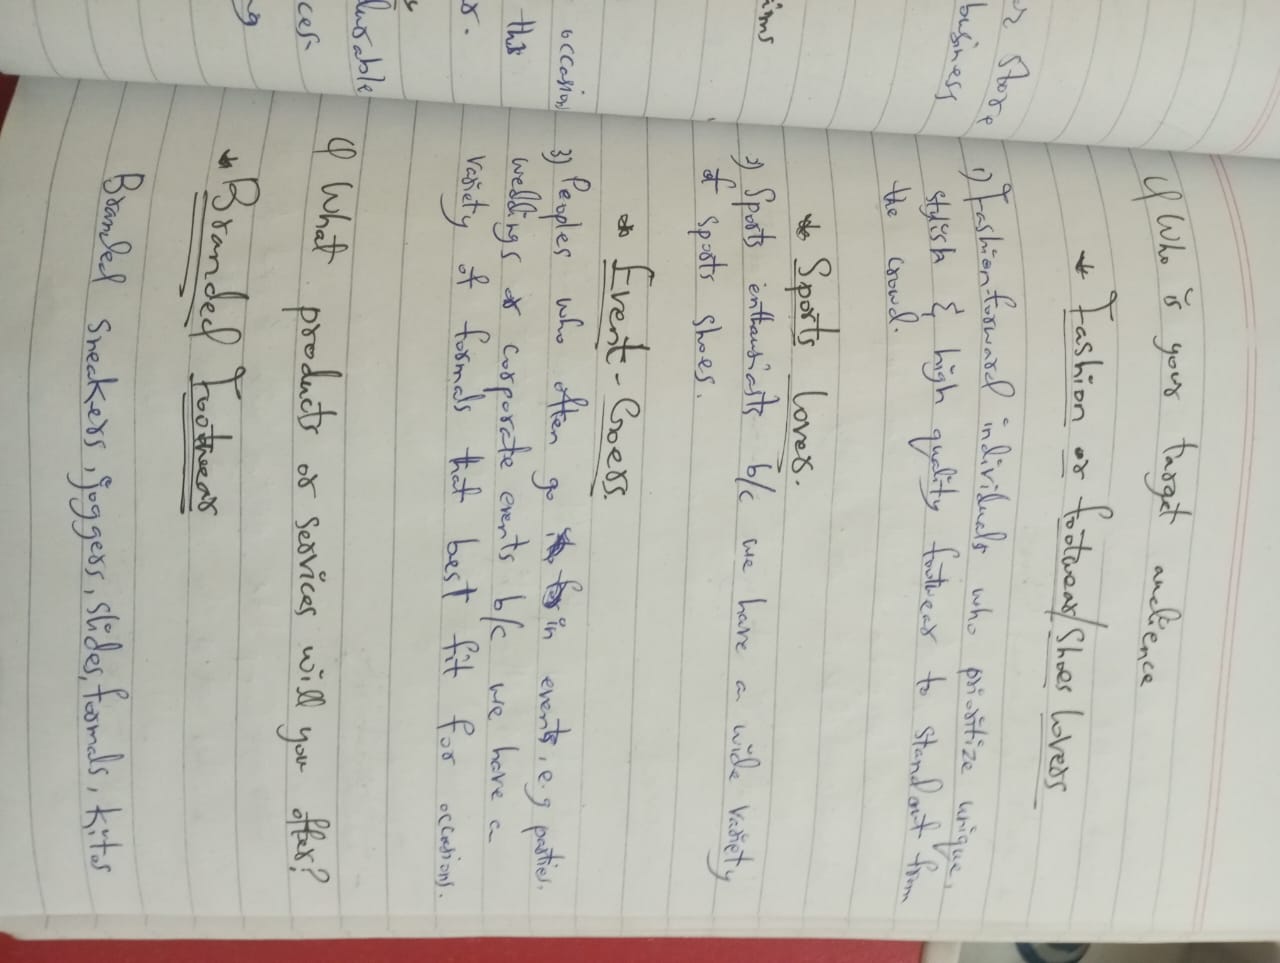 r store
business
ims
occasion
this
r.
durable
ces.
g
Q) Who is your target audience
* Fashion or footwear/Shoes lovers
1) Fashion-forward individuals who prioritize unique,
stylish & high quality footwear to standout from
the crowd.
* Sports lover.
2) Sports enthausiasts b/c we have a wide variety
of sports shoes.
* Event-Goers.
3) Peoples who often go in events, e.g parties,
weddings or corporate events b/c we have a
variety of formals that best fit for occasions.
Q) What products or services will you offer?
* Branded Footwear
Branded Sneakers, joggers, slides, formals, kitos